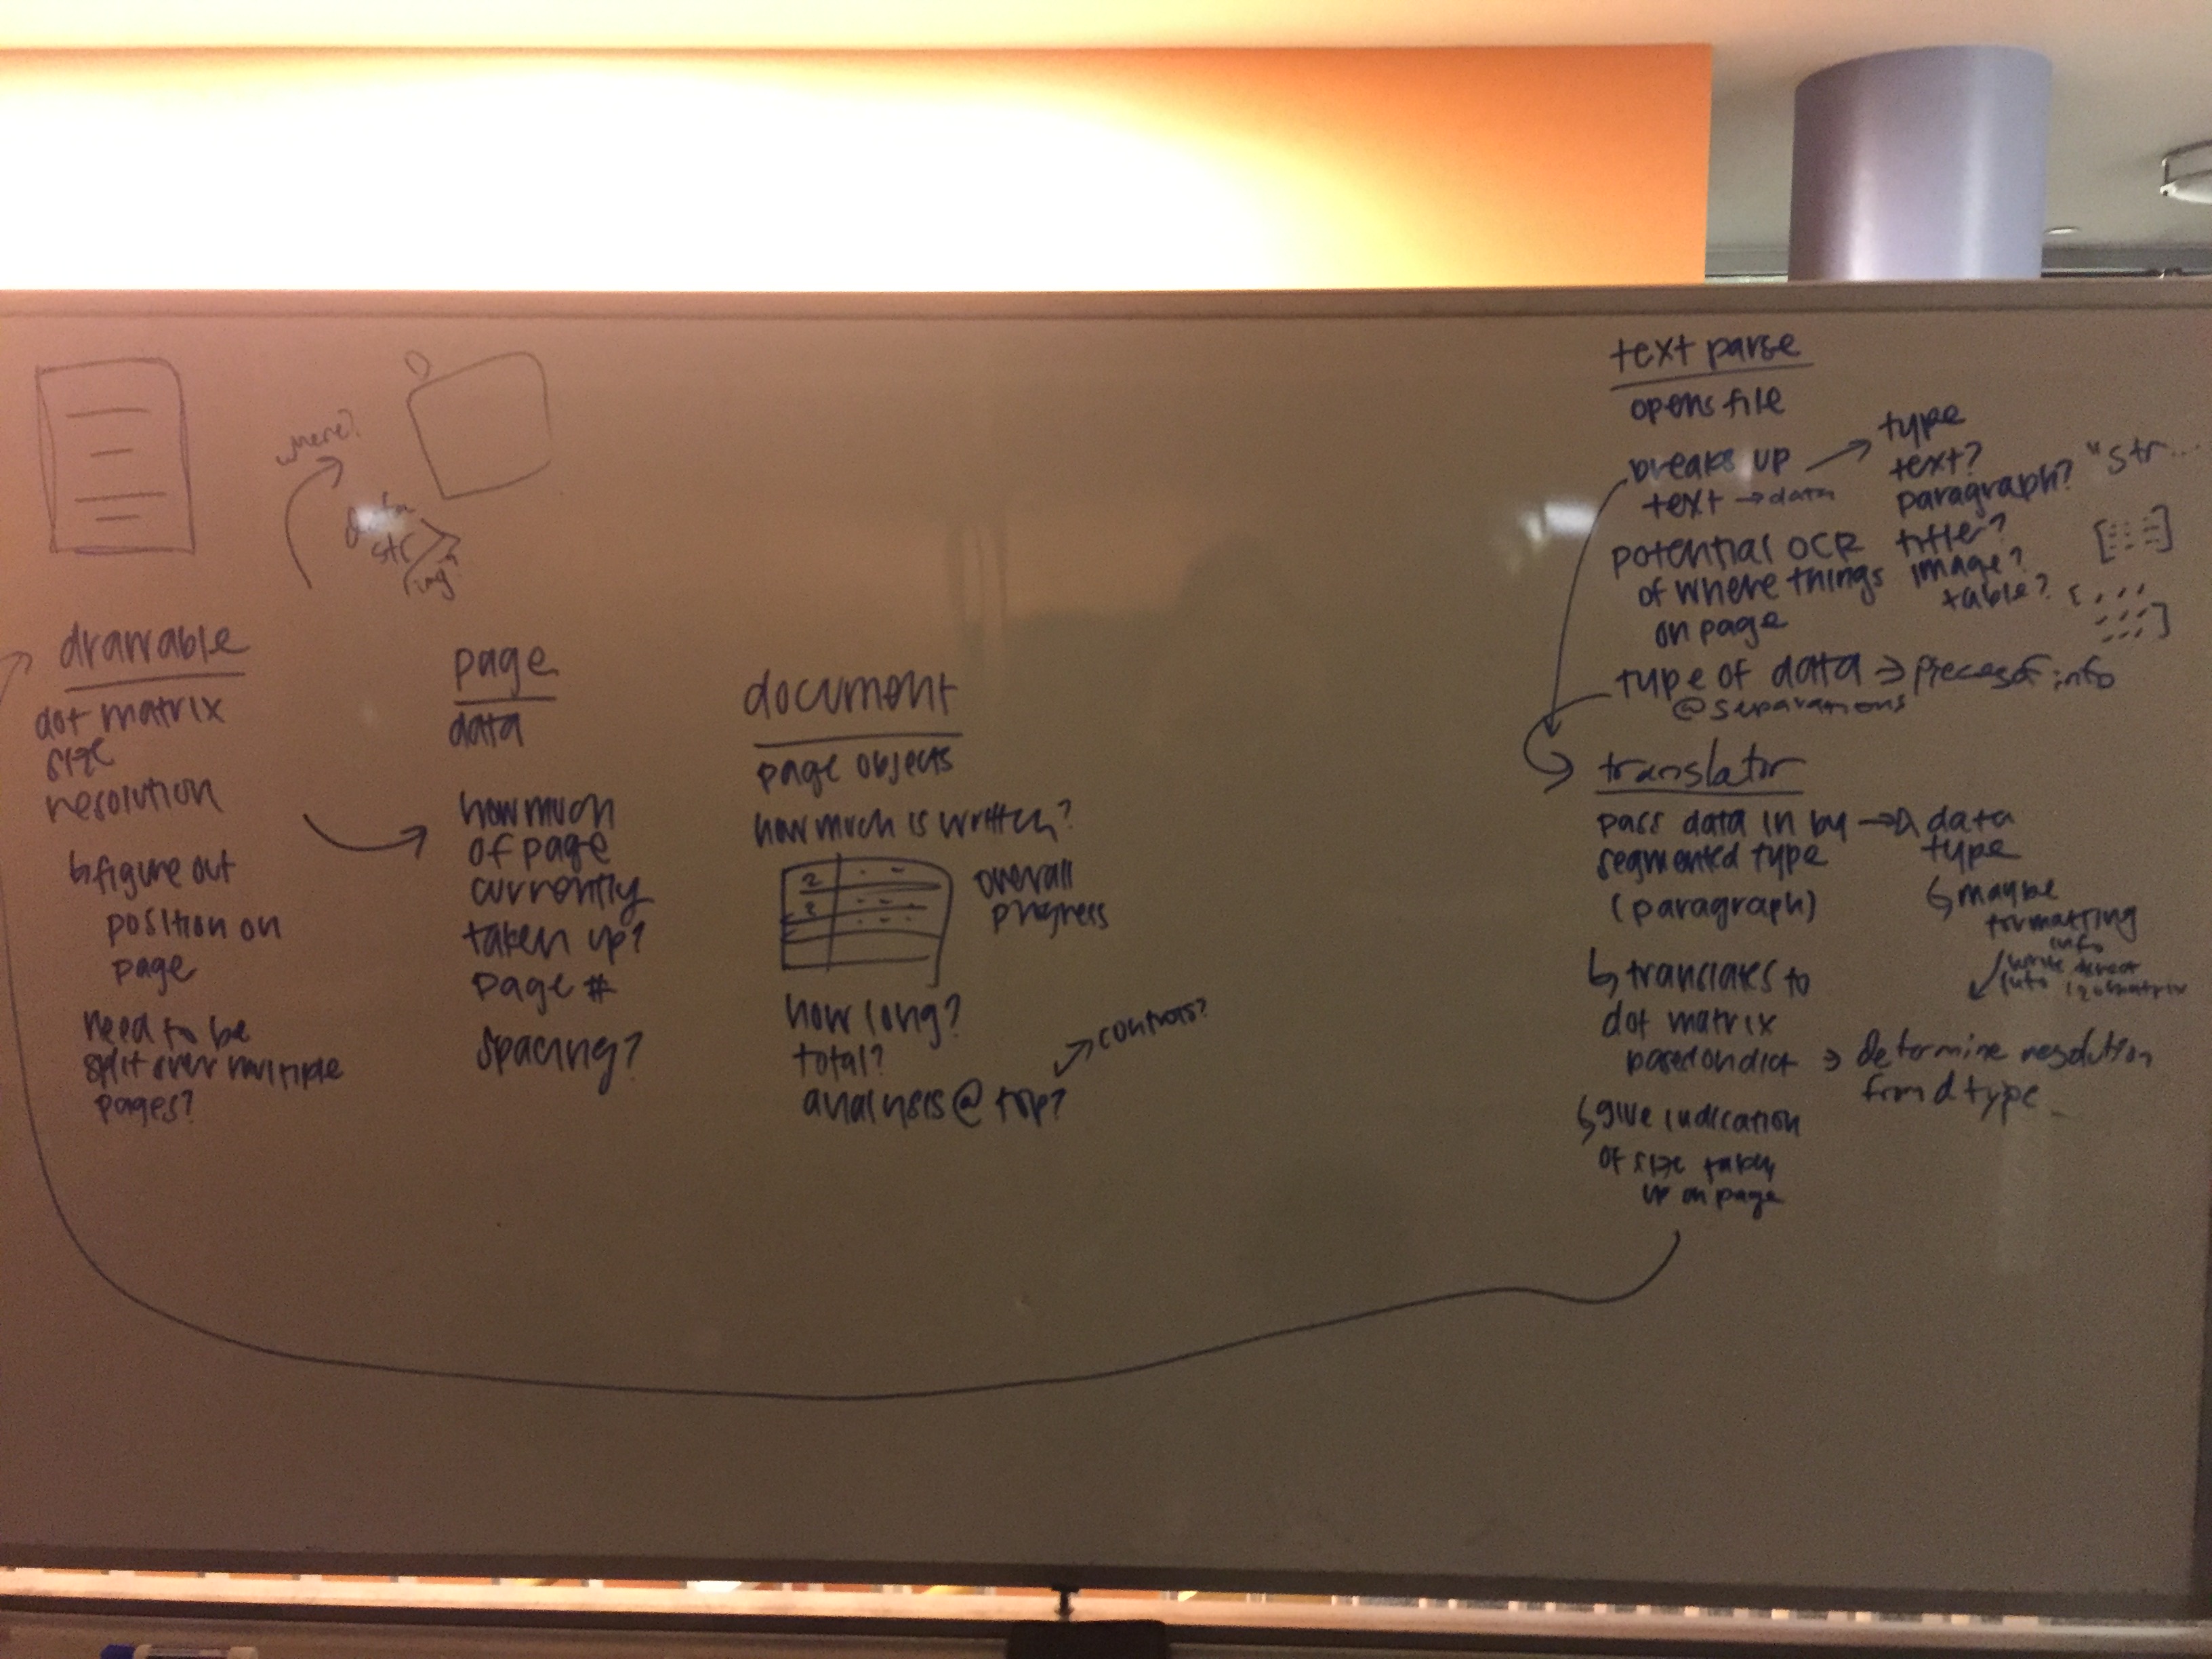 where?
data
str
ing
drawable
dot matrix
size
resolution
↳ figure out
position on
page
need to be
split over multiple
pages?
page
data
how much
of page
currently
taken up?
page #
spacing?
document
page objects
how much is written?
2
3
overall
progress
how long?
total?
analysis @ top?
controls?
text parse
opens file
breaks up
text → data
potential OCR
of where things
on page
type
text?
paragraph? "str...
title?
image?
table?
type of data → pieces of info
@ separations
translator
pass data in by → data
segmented type
type
(paragraph)
↳ maybe
formatting
info
↳ translates to
dot matrix
based on dict → determine resolution
from d type
↳ give indication
of size taken
up on page